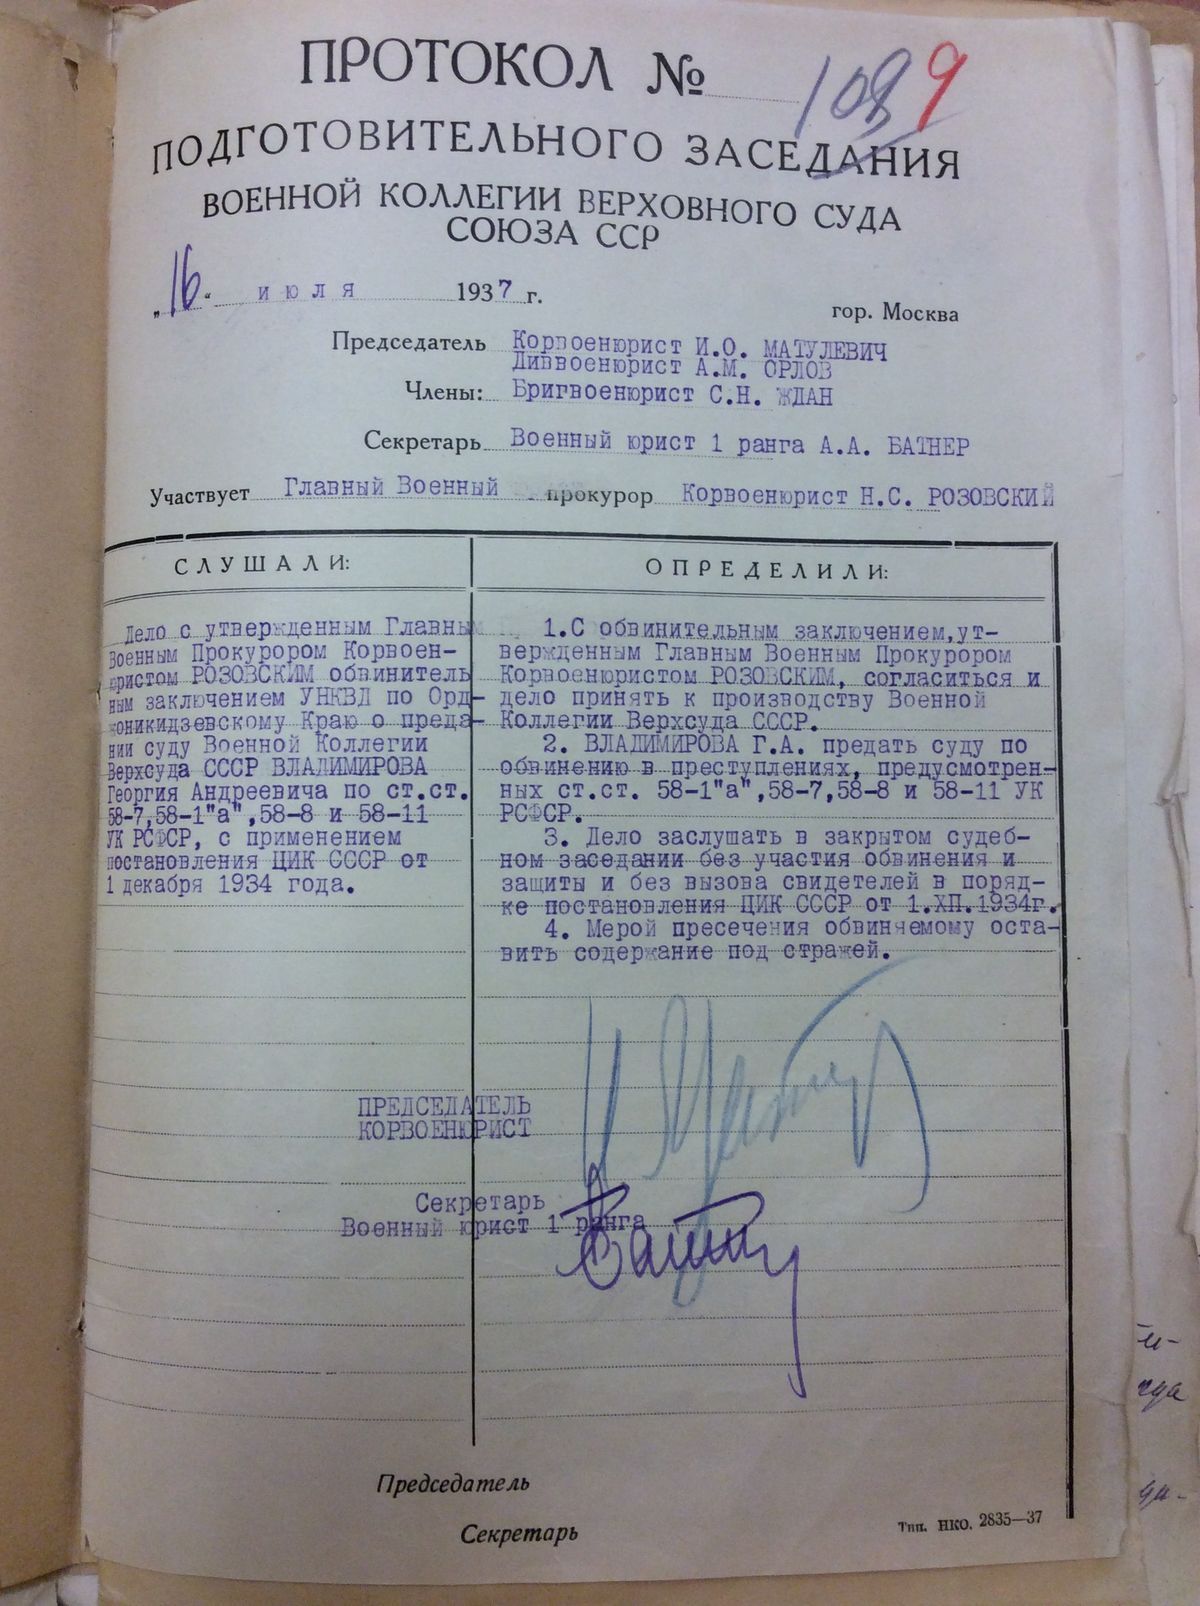 ПРОТОКОЛ №
9
ПОДГОТОВИТЕЛЬНОГО ЗАСЕДАНИЯ
ВОЕННОЙ КОЛЛЕГИИ ВЕРХОВНОГО СУДА
СОЮЗА ССР
„16“ июля 1937 г.
гор. Москва
Председатель Корвоенюрист И.О. МАТУЛЕВИЧ
Диввоенюрист А.М. ОРЛОВ
Члены: Бригвоенюрист С.Н. ЖДАН
Секретарь Военный юрист 1 ранга А.А. БАТНЕР
Участвует Главный Военный прокурор Корвоенюрист Н.С. РОЗОВСКИЙ
СЛУШАЛИ:
Дело с утвержденным Главным
Военным Прокурором Корвоен-
юристом РОЗОВСКИМ обвинитель
ным заключением УНКВД по Орд-
жоникидзевскому Краю о преда-
нии суду Военной Коллегии
Верхсуда СССР ВЛАДИМИРОВА
Георгия Андреевича по ст.ст.
58-7,58-1"а",58-8 и 58-11
УК РСФСР, с применением
постановления ЦИК СССР от
1 декабря 1934 года.
ОПРЕДЕЛИЛИ:
1.С обвинительным заключением,ут-
вержденным Главным Военным Прокурором
Корвоенюристом РОЗОВСКИМ, согласиться и
дело принять к производству Военной
Коллегии Верхсуда СССР.
2. ВЛАДИМИРОВА Г.А. предать суду по
обвинению в преступлениях, предусмотрен-
ных ст.ст. 58-1"а",58-7,58-8 и 58-11 УК
РСФСР.
3. Дело заслушать в закрытом судеб-
ном заседании без участия обвинения и
защиты и без вызова свидетелей в поряд-
ке постановления ЦИК СССР от 1.ХП.1934г.
4. Мерой пресечения обвиняемому оста-
вить содержание под стражей.
ПРЕДСЕДАТЕЛЬ
КОРВОЕНЮРИСТ
Секретарь
Военный юрист 1 ранга
Председатель
Секретарь
Тип. НКО. 2835—37